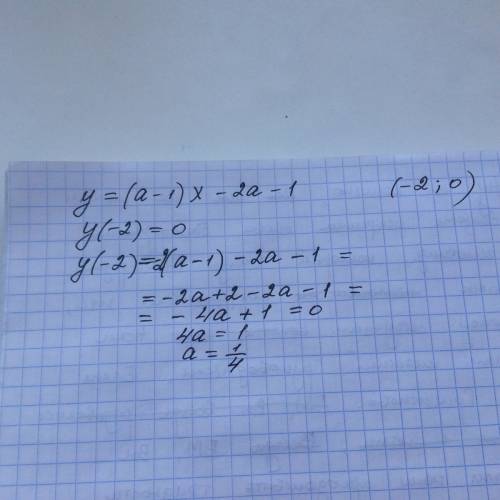 y = (a - 1) x - 2a - 1 (-2; 0)
y(-2) = 0
y(-2) = -2(a - 1) - 2a - 1 =
= -2a + 2 - 2a - 1 =
= - 4a + 1 = 0
4a = 1
a = 1/4